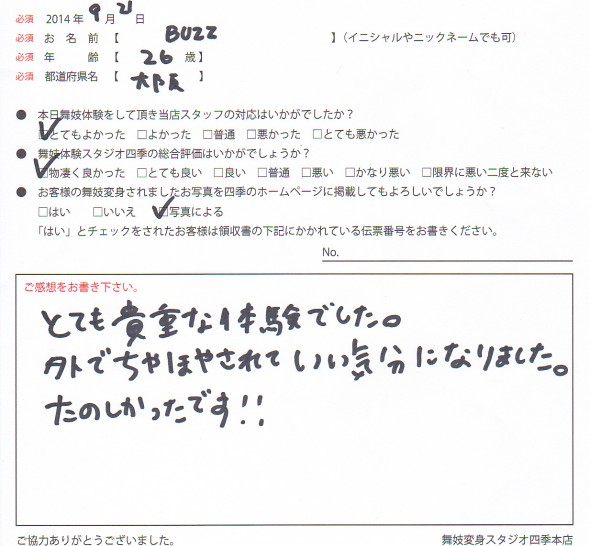 必須 2014 年 9 月 21 日
必須 お 名 前 【 BUZZ 】（イニシャルやニックネームでも可）
必須 年 齢 【 26 歳】
必須 都道府県名 【 大阪 】
● 本日舞妓体験をして頂き当店スタッフの対応はいかがでしたか？
☑とてもよかった □よかった □普通 □悪かった □とても悪かった
● 舞妓体験スタジオ四季の総合評価はいかがでしょうか？
☑物凄く良かった □とても良い □良い □普通 □悪い □かなり悪い □限界に悪い二度と来ない
● お客様の舞妓変身されましたお写真を四季のホームページに掲載してもよろしいでしょうか？
□はい □いいえ ☑写真による
「はい」とチェックをされたお客様は領収書の下記にかかれている伝票番号をお書きください。
No.
ご感想をお書き下さい。
とても貴重な体験でした。
外でちやほやされていい気分になりました。
たのしかったです!!
ご協力ありがとうございました。
舞妓変身スタジオ四季本店